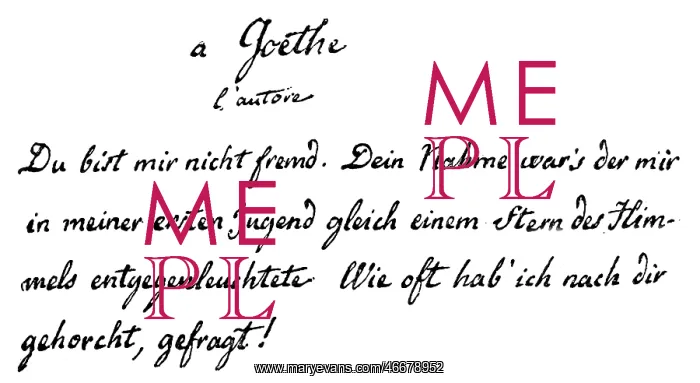 a Goethe
l'autore
Du bist mir nicht fremd. Dein Nahme war's der mir
in meiner ersten Jugend gleich einem Stern des Him-
mels entgegenleuchtete Wie oft hab' ich nach dir
gehorcht, gefragt!
ME
PL
ME
PL
www.maryevans.com/46678952